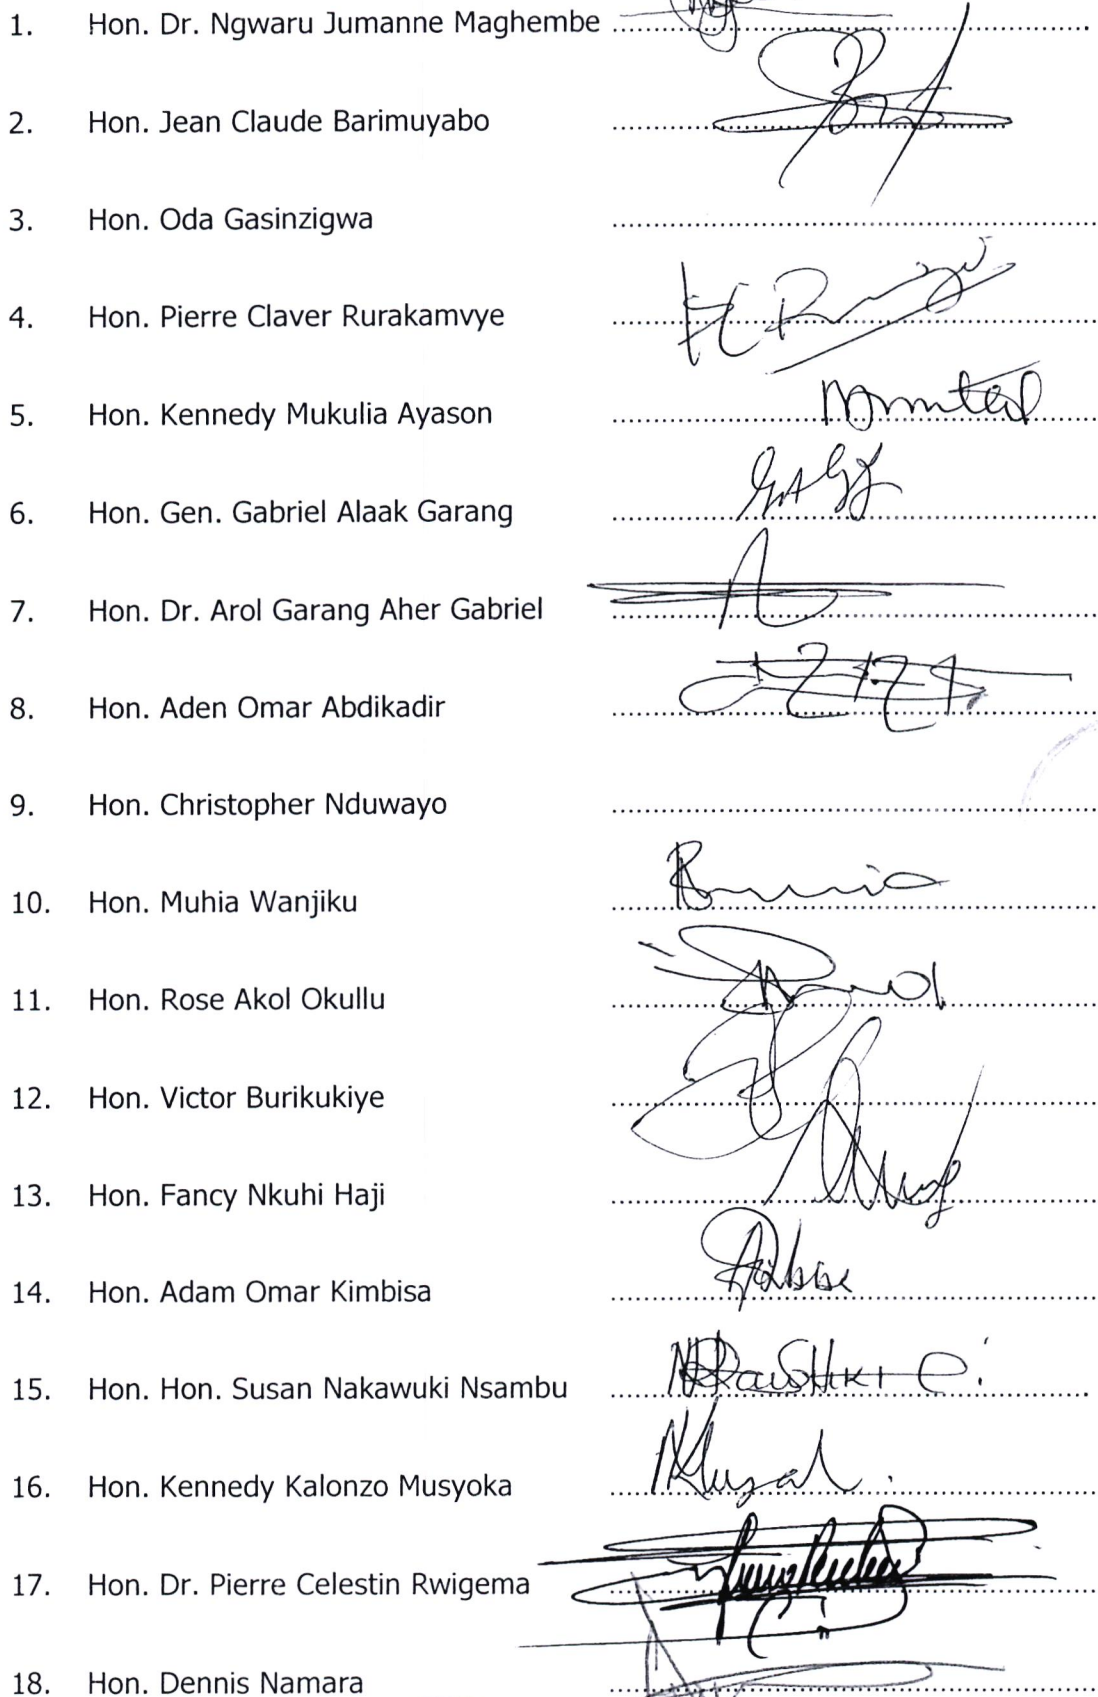 1. Hon. Dr. Ngwaru Jumanne Maghembe
2. Hon. Jean Claude Barimuyabo
3. Hon. Oda Gasinzigwa
4. Hon. Pierre Claver Rurakamvye
5. Hon. Kennedy Mukulia Ayason
6. Hon. Gen. Gabriel Alaak Garang
7. Hon. Dr. Arol Garang Aher Gabriel
8. Hon. Aden Omar Abdikadir
9. Hon. Christopher Nduwayo
10. Hon. Muhia Wanjiku
11. Hon. Rose Akol Okullu
12. Hon. Victor Burikukiye
13. Hon. Fancy Nkuhi Haji
14. Hon. Adam Omar Kimbisa
15. Hon. Hon. Susan Nakawuki Nsambu
16. Hon. Kennedy Kalonzo Musyoka
17. Hon. Dr. Pierre Celestin Rwigema
18. Hon. Dennis Namara